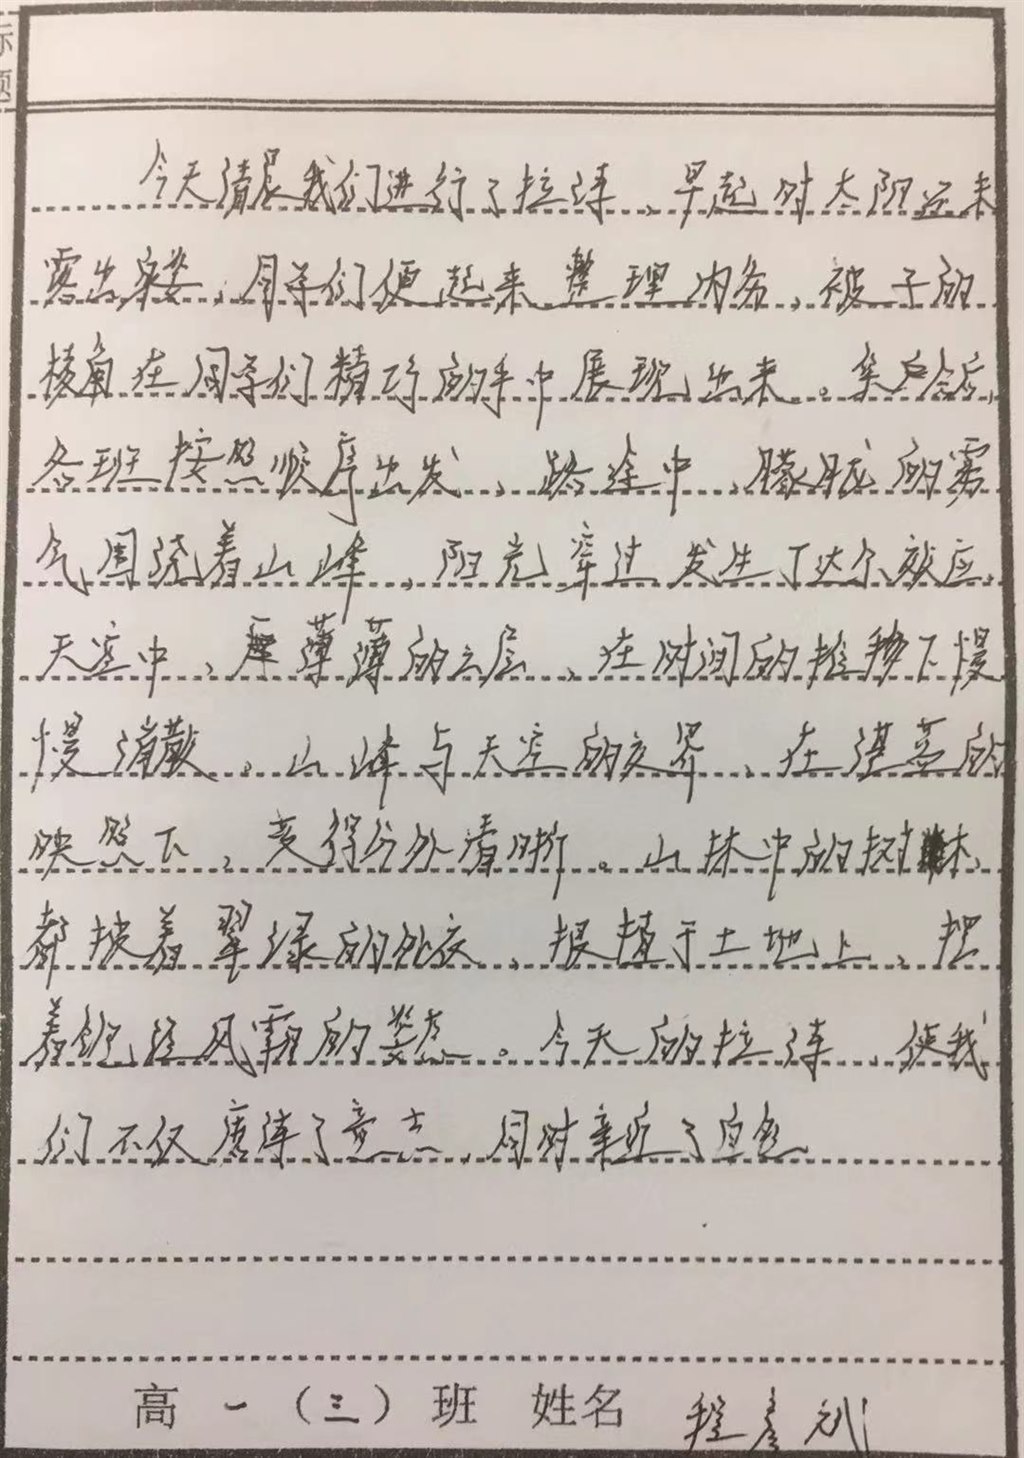 标题
今天清晨我们进行了拉练，早起时太阳还未
露出容姿，同学们便起来整理内务，被子的
棱角在同学们精巧的手中展现出来。集合后，
各班按照顺序出发，路途中，朦胧的雾
气围绕着山峰，阳光穿过发生丁达尔效应，
天空中，厚薄薄的云层，在时间的推移下慢
慢消散。山峰与天空的交界，在湛蓝的
映照下，变得分外清晰。山林中的树林，
都披着翠绿的外衣，根植于土地上，把
着饱经风霜的姿态。今天的拉练，使我
们不仅磨练了意志，同时亲近了自然
高一（三）班 姓名 程彦